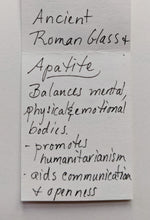 Ancient
Roman Glass &
Apatite
Balances mental,
physical & emotional
bodies.
- promotes
humanitarianism
- aids communication
& openness